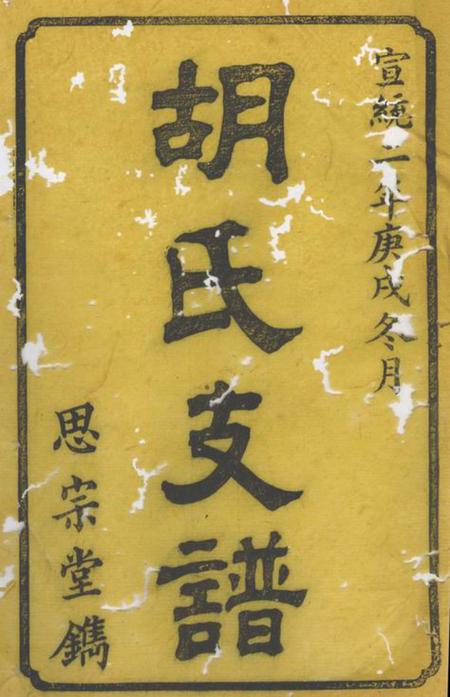 宣統二年庚戌冬月
胡氏支譜
思宗堂鐫